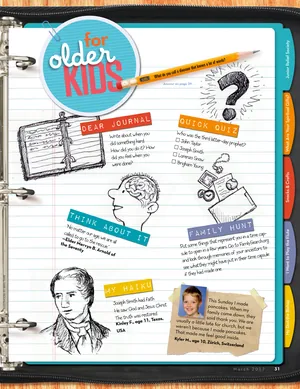 for
older
KIDS
What do you call a dinosaur that knows a lot of words?
Answer on page 29
DEAR JOURNAL
Write about when you
did something hard.
How did you do it? How
did you feel when you
were done?
QUICK QUIZ
Who was the third latter-day prophet?
John Taylor
Joseph Smith
Lorenzo Snow
Brigham Young
THINK ABOUT IT
"No matter our age, we are all
called to go to the rescue."
—Elder Mervyn B. Arnold of
the Seventy
FAMILY HUNT
Put some things that represent you in a time cap-
sule to open in a few years. Go to FamilySearch.org
and look through memories of your ancestors to
see what they might have put in their time capsule
if they had made one.
MY HAIKU
Joseph Smith had faith
He saw God and Jesus Christ
The truth was restored
Kinley P., age 11, Texas,
USA
This Sunday I made
pancakes. When my
family came down, they
were happy and
usually a little late for church, but we
weren't because I made pancakes.
That made me feel good inside.
Kyler M., age 10, Zürich, Switzerland
Snacks & Crafts
March 2017 31